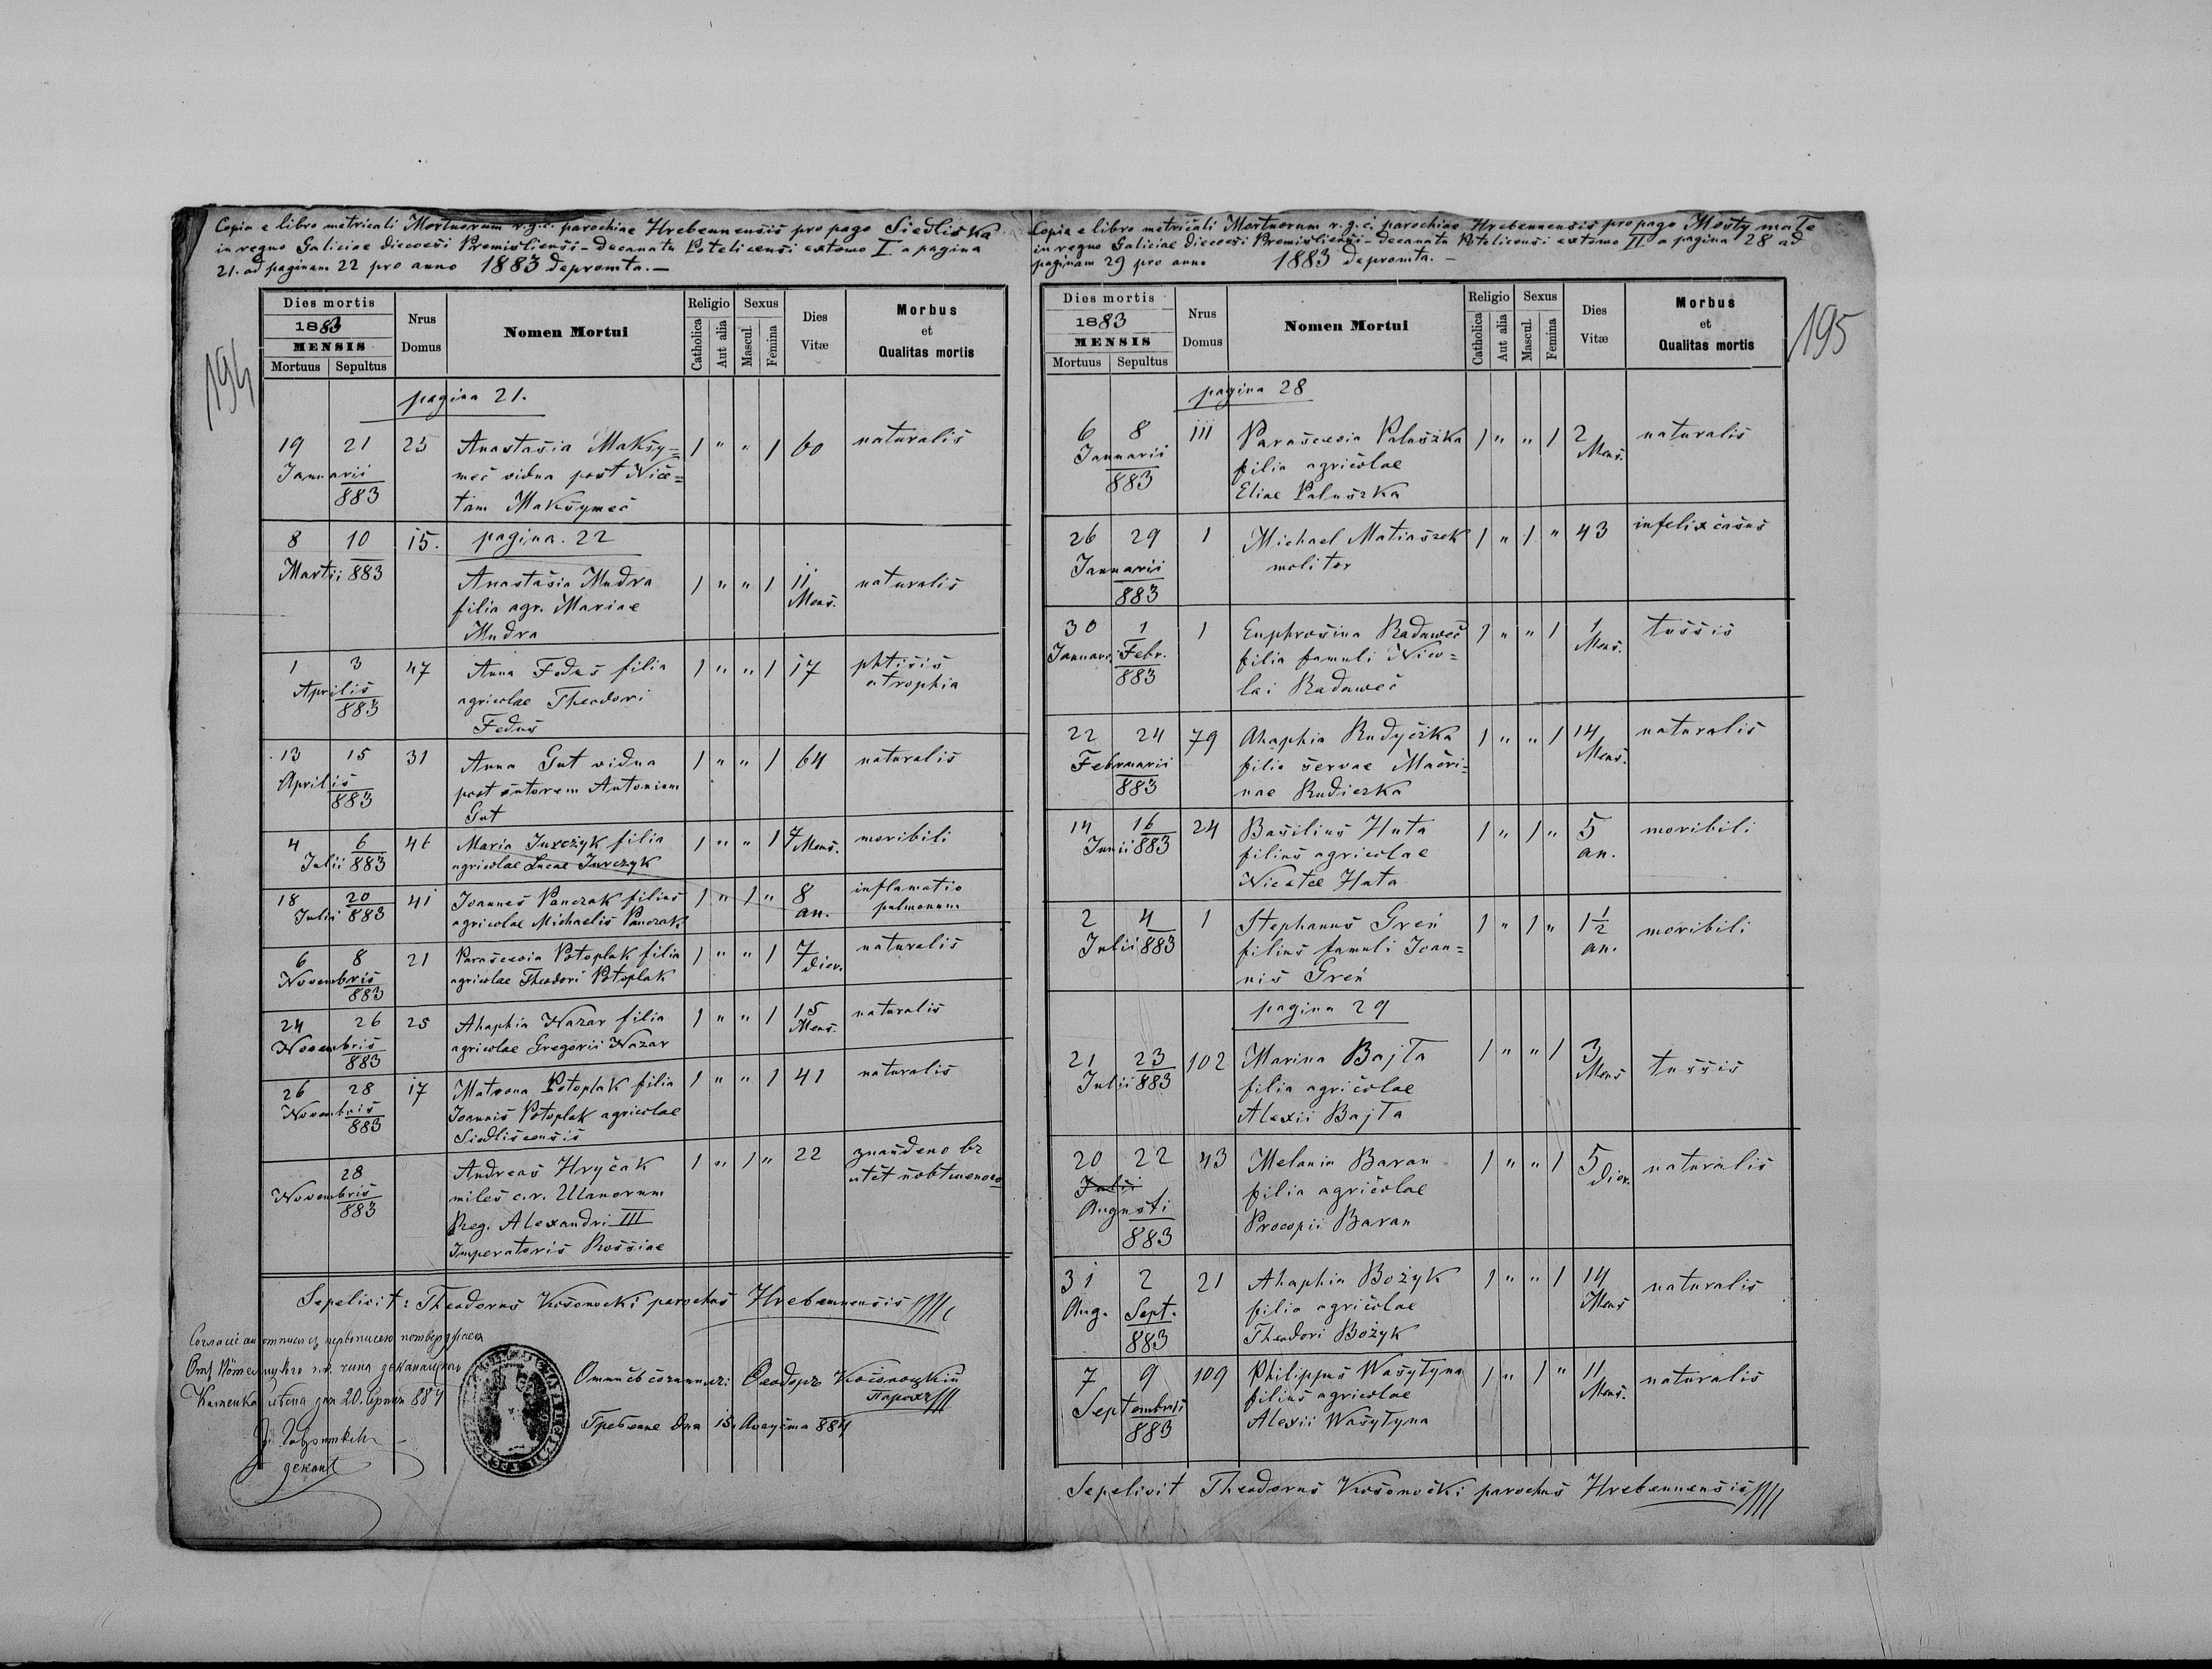 Copia e libro metricali Mortuorum r.g.c. parochiae Hrebennensis pro pago Siedliska
in regno Galiciae dioecesi Premisliensi - decanatu Potelicensi ex tomo I a pagina
21. ad paginam 22 pro anno 1883 depromta. —
194
Dies mortis
1883
MENSIS
Mortuus Sepultus
Nrus Domus
Nomen Mortui
Religio
Catholica Aut alia
Sexus
Mascul. Femina
Dies Vitæ
Morbus et Qualitas mortis
pagina 21.
19 21 25 Anastasia Maksy= 1 " " 1 60 naturalis
Januarii mec vidua post Nice=
883 tam Maksymec
8 10 15. pagina. 22
Martii 883 Anastasia Mudra 1 " " 1 11 naturalis
filia agr. Mariae Mens.
Mudra
1 3 47 Anna Fedus filia 1 " " 1 17 phtisis
Aprilis agricolae Theodori atrophia
883 Fedus
13 15 31 Anna Gut vidua 1 " " 1 64 naturalis
Aprilis post sutorem Antonium
883 Gut
4 6 46 Maria Jurczyk filia 1 " " 1 7 Mens. moribili
Julii 883 agricolae Lucae Jurczyk
18 20 41 Joannes Panczak filius 1 " 1 " 8 inflamatio
Julii 883 agricolae Michaelis Panczak an. pulmonum
6 8 21 Parascevia Potoplak filia 1 " " 1 7 naturalis
Novembris agricolae Theodori Potoplak dier.
883
24 26 25 Ahaphia Nazar filia 1 " " 1 15 naturalis
Novembris agricolae Gregorii Nazar Mens.
883
26 28 17 Matrona Potoplak filia 1 " " 1 41 naturalis
Novembris Joannis Potoplak agricolae
883 Siedliscensis
28 Andreas Hryćak 1 " 1 " 22
Novembris miles c.r. Ulanorum
883 Reg. Alexandri III
Imperatoris Rossiae
Sepelivit: Theodorus Kosonocki parochus Hrebennensis
Ѳеодоръ Косоноцкій
Парохъ
Гребенне дня 15. Августа 884
дня 20. 884
декан
Copia e libro metricali Mortuorum r.g.c. parochiae Hrebennensis pro pago Mosty małe
in regno Galiciae dioecesi Premisliensi - decanatu Potelicensi ex tomo II a pagina 28 ad
paginam 29 pro anno 1883 depromta. —
195
Dies mortis
1883
MENSIS
Mortuus Sepultus
Nrus Domus
Nomen Mortui
Religio
Catholica Aut alia
Sexus
Mascul. Femina
Dies Vitæ
Morbus et Qualitas mortis
pagina 28
6 8 111 Parascevia Paluszka 1 " " 1 2 naturalis
Januarii filia agricolae Mens.
883 Eliae Paluszka
26 29 1 Michael Matiaszek 1 " 1 " 43 infelix casus
Januarii molitor
883
30 1 1 Euphrosina Radawec 1 " " 1 1 tussis
Januarii Febr. filia famuli Nico= Mens.
883 lai Radawec
22 24 79 Ahaphia Rudyczka 1 " " 1 14 naturalis
Februarii filia servae Macri= Mens.
883 nae Rudiczka
14 16 24 Basilius Huta 1 " 1 " 5 moribili
Junii 883 filius agricolae an.
Nicetae Huta
2 4 1 Stephanus Greń 1 " 1 " 1½ moribili
Julii 883 filius famuli Joan= an.
nis Greń
pagina 29
21 23 102 Marina Bajta 1 " " 1 3 tussis
Julii 883 filia agricolae Mens
Alexii Bajta
20 22 43 Melania Baran 1 " " 1 5 naturalis
Julii filia agricolae dier.
Augusti Procopii Baran
883
31 2 21 Ahaphia Bożyk 1 " " 1 14 naturalis
Aug. Sept. filia agricolae Mens
883 Theodori Bożyk
7 9 109 Philippus Wasytyna 1 " 1 " 11 naturalis
Septembris filius agricolae Mens.
883 Alexii Wasytyna
Sepelivit Theodorus Kosonocki parochus Hrebennensis